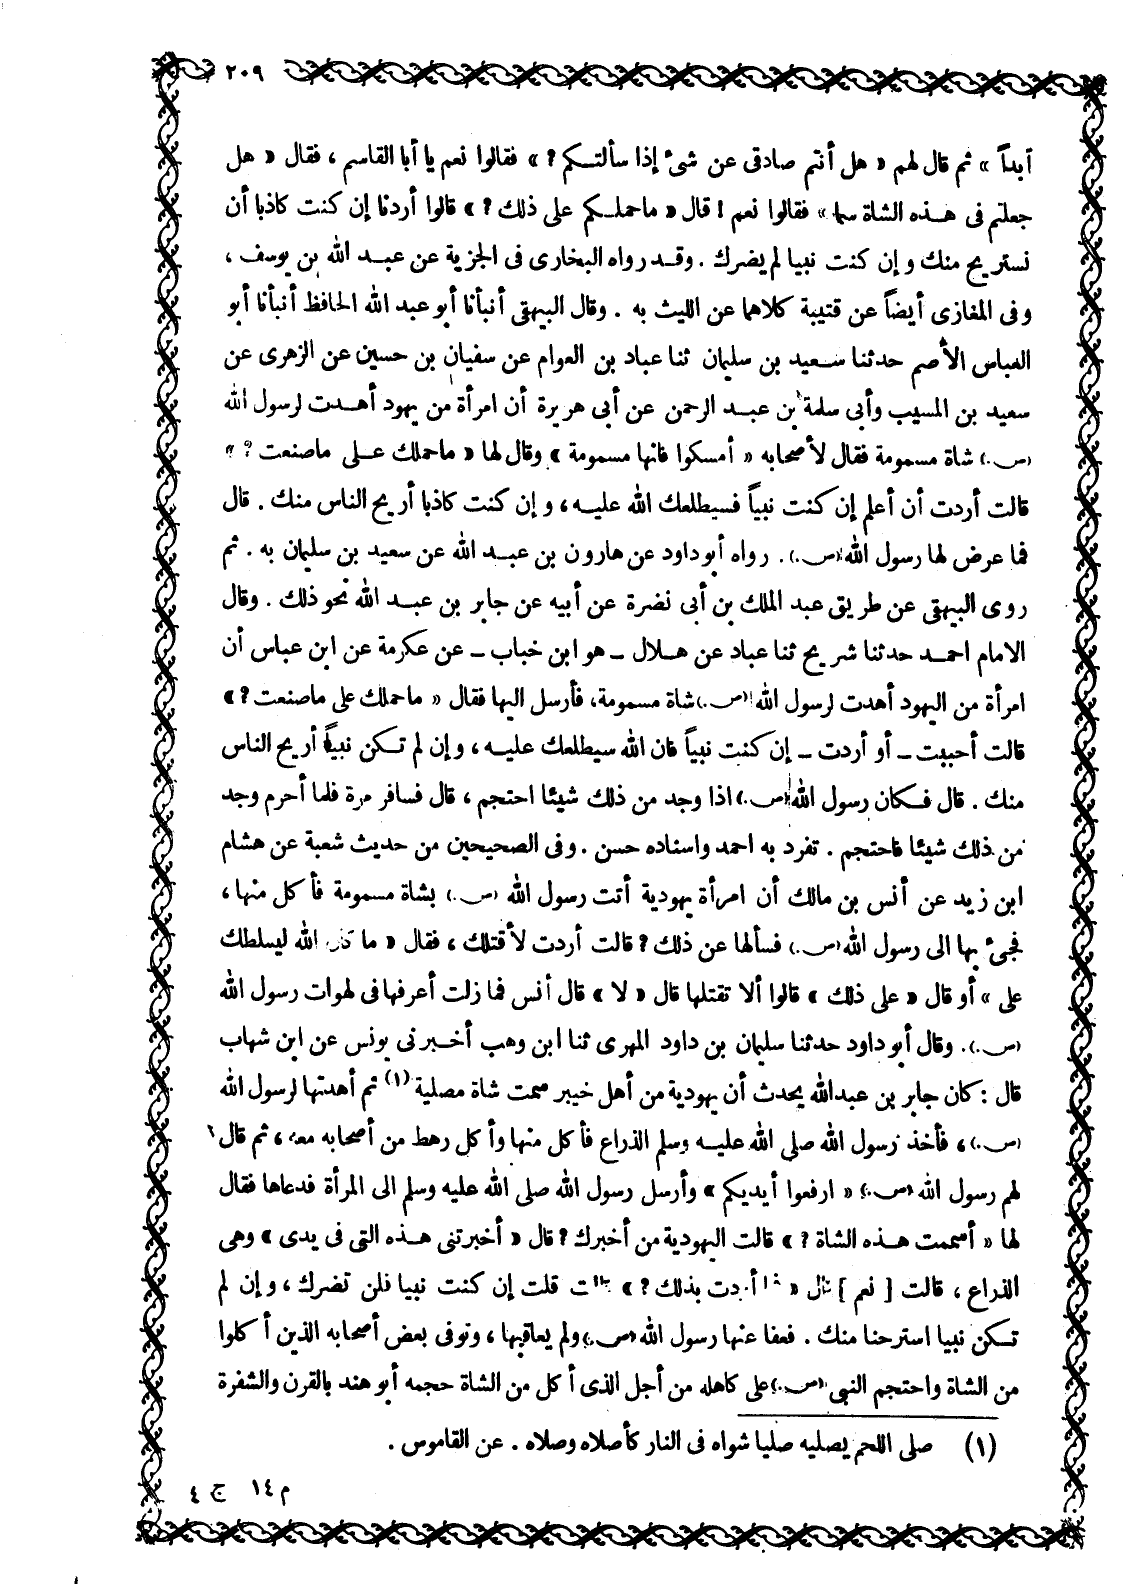 ٢٠٩
أبداً » ثم قال لهم « هل أنتم صادقى عن شىء إذا سألتكم ? » فقالوا نعم يا أبا القاسم ، فقال « هل
جعلتم فى هذه الشاة سما » فقالوا نعم ! قال « ماحملكم على ذلك ? » قالوا أردنا إن كنت كاذبا أن
نستريح منك و إن كنت نبيا لم يضرك . وقد رواه البخارى فى الجزية عن عبد الله بن يوسف ،
وفى المغازى أيضاً عن قتيبة كلاهما عن الليث به . وقال البيهقى أنبأنا أبو عبد الله الحافظ أنبأنا أبو
العباس الأصم حدثنا سعيد بن سليمان ثنا عباد بن العوام عن سفيان بن حسين عن الزهرى عن
سعيد بن المسيب وأبى سلمة بن عبد الرحمن عن أبى هريرة أن امرأة من يهود أهدت لرسول الله
(ص.) شاة مسمومة فقال لأصحابه « أمسكوا فانها مسمومة » وقال لها « ماحملك على ماصنعت ? »
قالت أردت أن أعلم إن كنت نبياً فسيطلعك الله عليه ، و إن كنت كاذبا أريح الناس منك . قال
فما عرض لها رسول الله (ص.) . رواه أبو داود عن هارون بن عبد الله عن سعيد بن سليمان به . ثم
روى البيهقى عن طريق عبد الملك بن أبى نضرة عن أبيه عن جابر بن عبد الله نحو ذلك . وقال
الامام احمد حدثنا شريح ثنا عباد عن هلال ـ هو ابن خباب ـ عن عكرمة عن ابن عباس أن
امرأة من اليهود أهدت لرسول الله (ص.) شاة مسمومة، فأرسل اليها فقال « ماحملك على ماصنعت ? »
قالت أحببت ـ أو أردت ـ إن كنت نبياً فان الله سيطلعك عليه ، و إن لم تكن نبياً أريح الناس
منك . قال فكان رسول الله (ص.) اذا وجد من ذلك شيئا احتجم ، قال فسافر مرة فلما أحرم وجد
من ذلك شيئا فاحتجم . تفرد به احمد واسناده حسن . وفى الصحيحين من حديث شعبة عن هشام
ابن زيد عن أنس بن مالك أن امرأة يهودية أتت رسول الله (ص.) بشاة مسمومة فأكل منها ،
فجىء بها الى رسول الله (ص.) فسألها عن ذلك ? قالت أردت لأقتلك ، فقال « ما كان الله ليسلطك
على » أو قال « على ذلك » قالوا ألا تقتلها قال « لا » قال أنس فما زلت أعرفها فى لهوات رسول الله
(ص.) . وقال أبو داود حدثنا سليمان بن داود المهرى ثنا ابن وهب أخبرنى يونس عن ابن شهاب
قال : كان جابر بن عبد الله يحدث أن يهودية من أهل خيبر سمت شاة مصلية (١) ثم أهدتها لرسول الله
(ص.) ، فأخذ رسول الله صلى الله عليه وسلم الذراع فأكل منها وأكل رهط من أصحابه معه ، ثم قال
لهم رسول الله (ص.) « ارفعوا أيديكم » وأرسل رسول الله صلى الله عليه وسلم الى المرأة فدعاها فقال
لها « أسممت هذه الشاة ? » قالت اليهودية من أخبرك ? قال « أخبرتنى هذه التى فى يدى » وهى
الذراع ، قالت [ نعم ] قال « فما أردت بذلك ? » قالت قلت إن كنت نبيا فلن تضرك ، و إن لم
تكن نبيا استرحنا منك . فعفا عنها رسول الله (ص.) ولم يعاقبها ، وتوفى بعض أصحابه الذين أكلوا
من الشاة واحتجم النبى (ص.) على كاهله من أجل الذى أكل من الشاة حجمه أبو هند بالقرن والشفرة
(١) صلى اللحم يصليه صليا شواه فى النار كأصلاه وصلاه . عن القاموس .
م ١٤ ج ٤